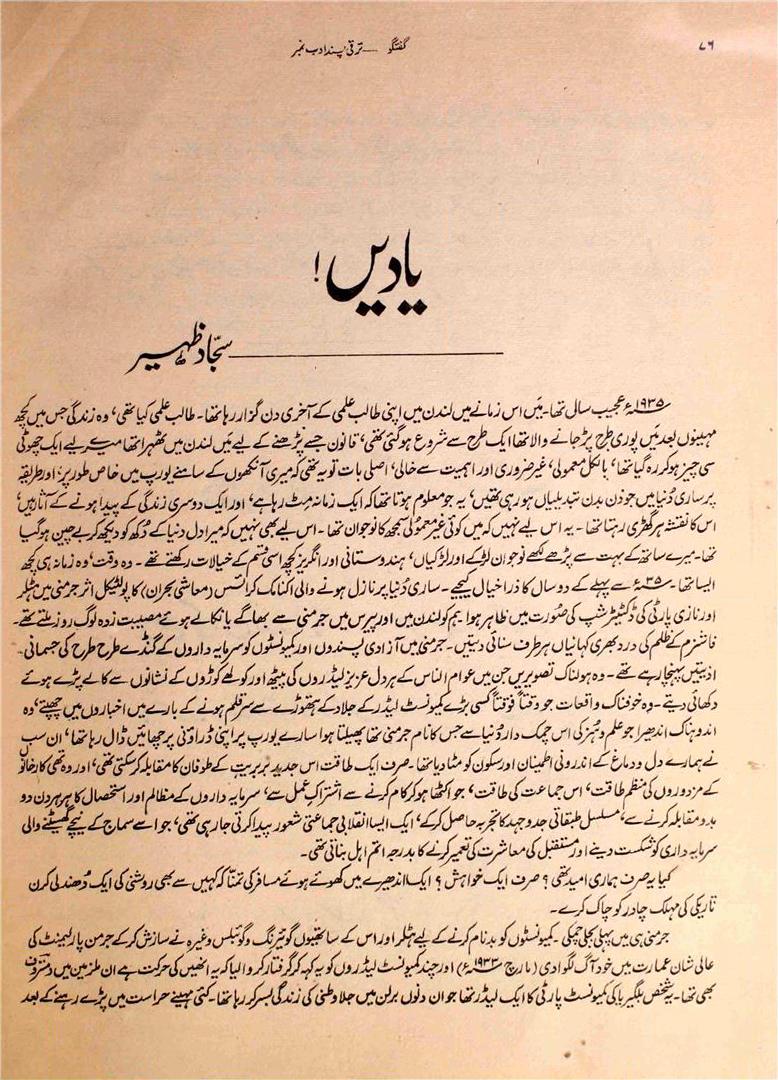 ۷۶
گفتگو — ترقی پسند ادب نمبر
یادیں!
سجّاد ظہیر
۱۹۳۵ء عجیب سال تھا۔ میں اس زمانے میں لندن میں اپنی طالب علمی کے آخری دن گزار رہا تھا۔ طالب علمی کیا تھی، وہ زندگی جس میں کچھ
مہینوں بعد میں پوری طرح پڑ جانے والا تھا ایک طرح سے شروع ہوگئی تھی، قانون جسے پڑھنے کے لیے میں لندن میں ٹھہرا تھا میرے لیے ایک چھوٹی
سی چیز ہو کر رہ گیا تھا، بالکل معمولی، غیر ضروری اور اہمیت سے خالی، اصلی بات تو یہ تھی کہ میری آنکھوں کے سامنے یورپ میں خاص طور پر، اور طریقہ
پر ساری دُنیا میں جو دن بدن تبدیلیاں ہو رہی تھیں، یہ جو معلوم ہوتا تھا کہ ایک زمانہ مٹ رہا ہے، اور ایک دوسری زندگی کے پیدا ہونے کے آثار ہیں،
اس کا نقشہ ہر گھڑی رہتا تھا۔ یہ اس لیے نہیں کہ میں کوئی غیر معمولی سمجھ کا نوجوان تھا۔ اس لیے بھی نہیں کہ میرا دل دنیا کے دُکھ کو دیکھ کر بے چین ہوگیا
تھا۔ میرے ساتھ کے بہت سے پڑھے لکھے نوجوان لڑکے اور لڑکیاں، ہندوستانی اور انگریز کچھ اسی قسم کے خیالات رکھتے تھے۔ وہ وقت، وہ زمانہ ہی کچھ
ایسا تھا۔ ۳۵ء سے پہلے کے دو سال کا ذرا خیال کیجیے۔ ساری دُنیا پر نازل ہونے والی اکنامک کرائسس (معاشی بحران) کا پولٹیکل اثر جرمنی میں ہٹلر
اور نازی پارٹی کی ڈکٹیٹر شپ کی صُورت میں ظاہر ہوا ہم کو لندن میں اور پیرس میں جرمنی سے بھاگے یا نکالے ہوئے مصیبت زدہ لوگ روز ملتے تھے۔
فاشزم کے ظلم کی درد بھری کہانیاں ہر طرف سنائی دیتیں۔ جرمنی میں آزادی پسندوں اور کمیونسٹوں کو سرمایہ داروں کے گنڈے طرح طرح کی جسمانی
اذیتیں پہنچا رہے تھے۔ وہ ہولناک تصویریں جن میں عوام الناس کے ہر دل عزیز لیڈروں کی پیٹھ اور کولھے کوڑوں کے نشانوں سے کالے پڑے ہوئے
دکھائی دیتے۔ وہ خوفناک واقعات جو وقتاً فوقتاً کسی بڑے کمیونسٹ لیڈر کے جلاد کے ہتھوڑے سے سر قلم ہونے کے بارے میں اخباروں میں چھپتے، وہ
اندوہناک اندھیرا جو علم و ہنر کی اس چمک دار دُنیا سے جس کا نام جرمنی تھا پھیلتا ہوا سارے یورپ پر اپنی ڈراؤنی پرچھائیں ڈال رہا تھا، ان سب
نے ہمارے دل و دماغ کے اندرونی اطمینان اور سکون کو مٹا دیا تھا۔ صرف ایک طاقت اس جدید بربریت کے طوفان کا مقابلہ کر سکتی تھی، اور وہ تھی کارخانوں
کے مزدوروں کی منظم طاقت، اس جماعت کی طاقت، جو اکٹھا ہو کر کام کرنے سے اشتراکِ عمل سے، سرمایہ داروں کے مظالم اور استحصال کا ہر ہر دن دو
بدو مقابلہ کرنے سے، مسلسل طبقاتی جدوجہد کا تجربہ حاصل کرکے، ایک ایسا انقلابی جماعتی شعور پیدا کرتی جارہی تھی، جو اسے سماج کے نیچے گھسیٹنے والی
سرمایہ داری کو شکست دینے اور مستقبل کی معاشرت کی تعمیر کرنے کا بدرجہ اتم اہل بناتی تھی۔
کیا یہ صرف ہماری امید تھی؟ صرف ایک خواہش؟ ایک اندھیرے میں کھوئے ہوئے مسافر کی تمنّا کہ کہیں سے بھی روشنی کی ایک دُھندلی کرن
تاریکی کی مہلک چادر کو چاک کرے۔
جرمنی ہی میں پہلی بجلی چمکی۔ کمیونسٹوں کو بدنام کرنے کے لیے ہٹلر اور اس کے ساتھیوں گوئیرنگ و گوئبلس وغیرہ نے سازش کرکے جرمن پارلیمنٹ کی
عالی شان عمارت میں خود آگ لگوا دی (مارچ ۱۹۳۳ء) اور چند کمیونسٹ لیڈروں کو یہ کہہ کر گرفتار کروا لیا کہ یہ انھیں کی حرکت ہے ان ملزمین میں دمتروف
بھی تھا۔ یہ شخص بلگیریا کی کمیونسٹ پارٹی کا ایک لیڈر تھا جو ان دنوں برلن میں جلا وطنی کی زندگی بسر کر رہا تھا۔ کئی مہینے حراست میں پڑے رہنے کے بعد